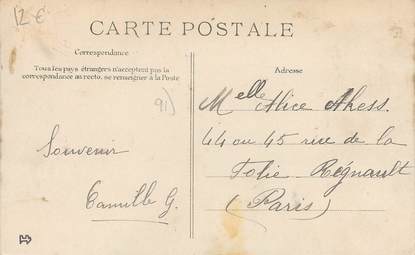 12 €
CARTE POSTALE
Correspondance
Tous les pays étrangers n'acceptent pas la
correspondance au recto, se renseigner à la Poste
Adresse
91)
Melle Alice Ahess.
44 ou 45 rue de la
Folie Régnault
(Paris)
Souvenir
Camille G.